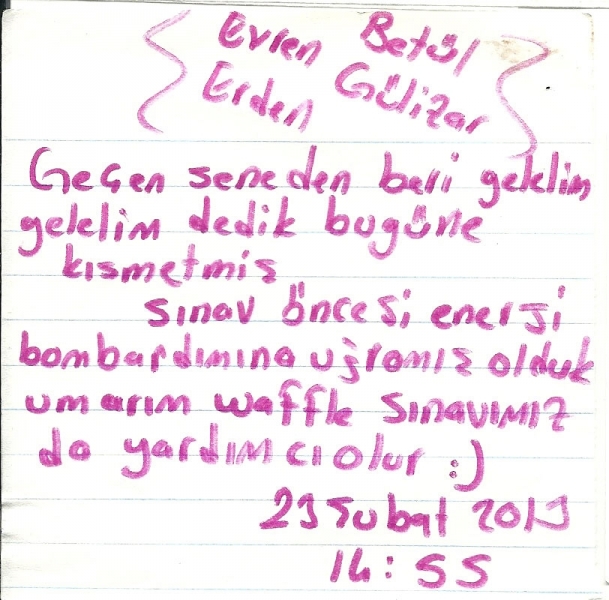 Evren Betül
Erden Gülizar
Geçen seneden beri gelelim
gelelim dedik bugüne
kısmetmiş
sınav öncesi enerji
bombardımına uğramış olduk
umarım waffle sınavımız
da yardımcı olur :)
23 Şubat 2013
14:55